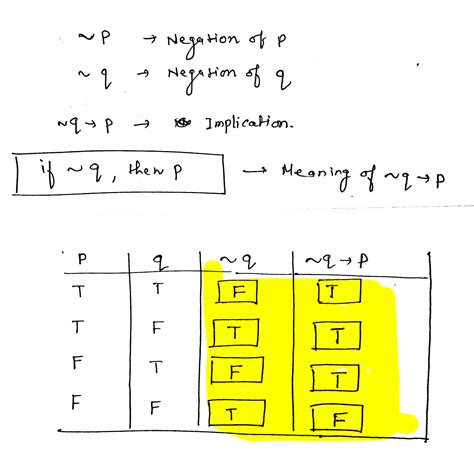 ~p → Negation of p
~q → Negation of q
~q→p → Implication.
if ~q, then p → Meaning of ~q→p
p q ~q ~q→p
T T F T
T F T T
F T F T
F F T F